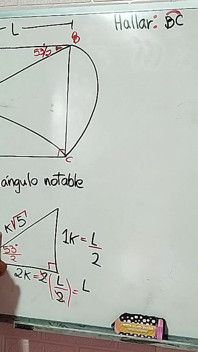 L
Hallar: BC
B
53°/2
C
ángulo notable
K√5
1K = L/2
53°/2
2K = 2(L/2) = L